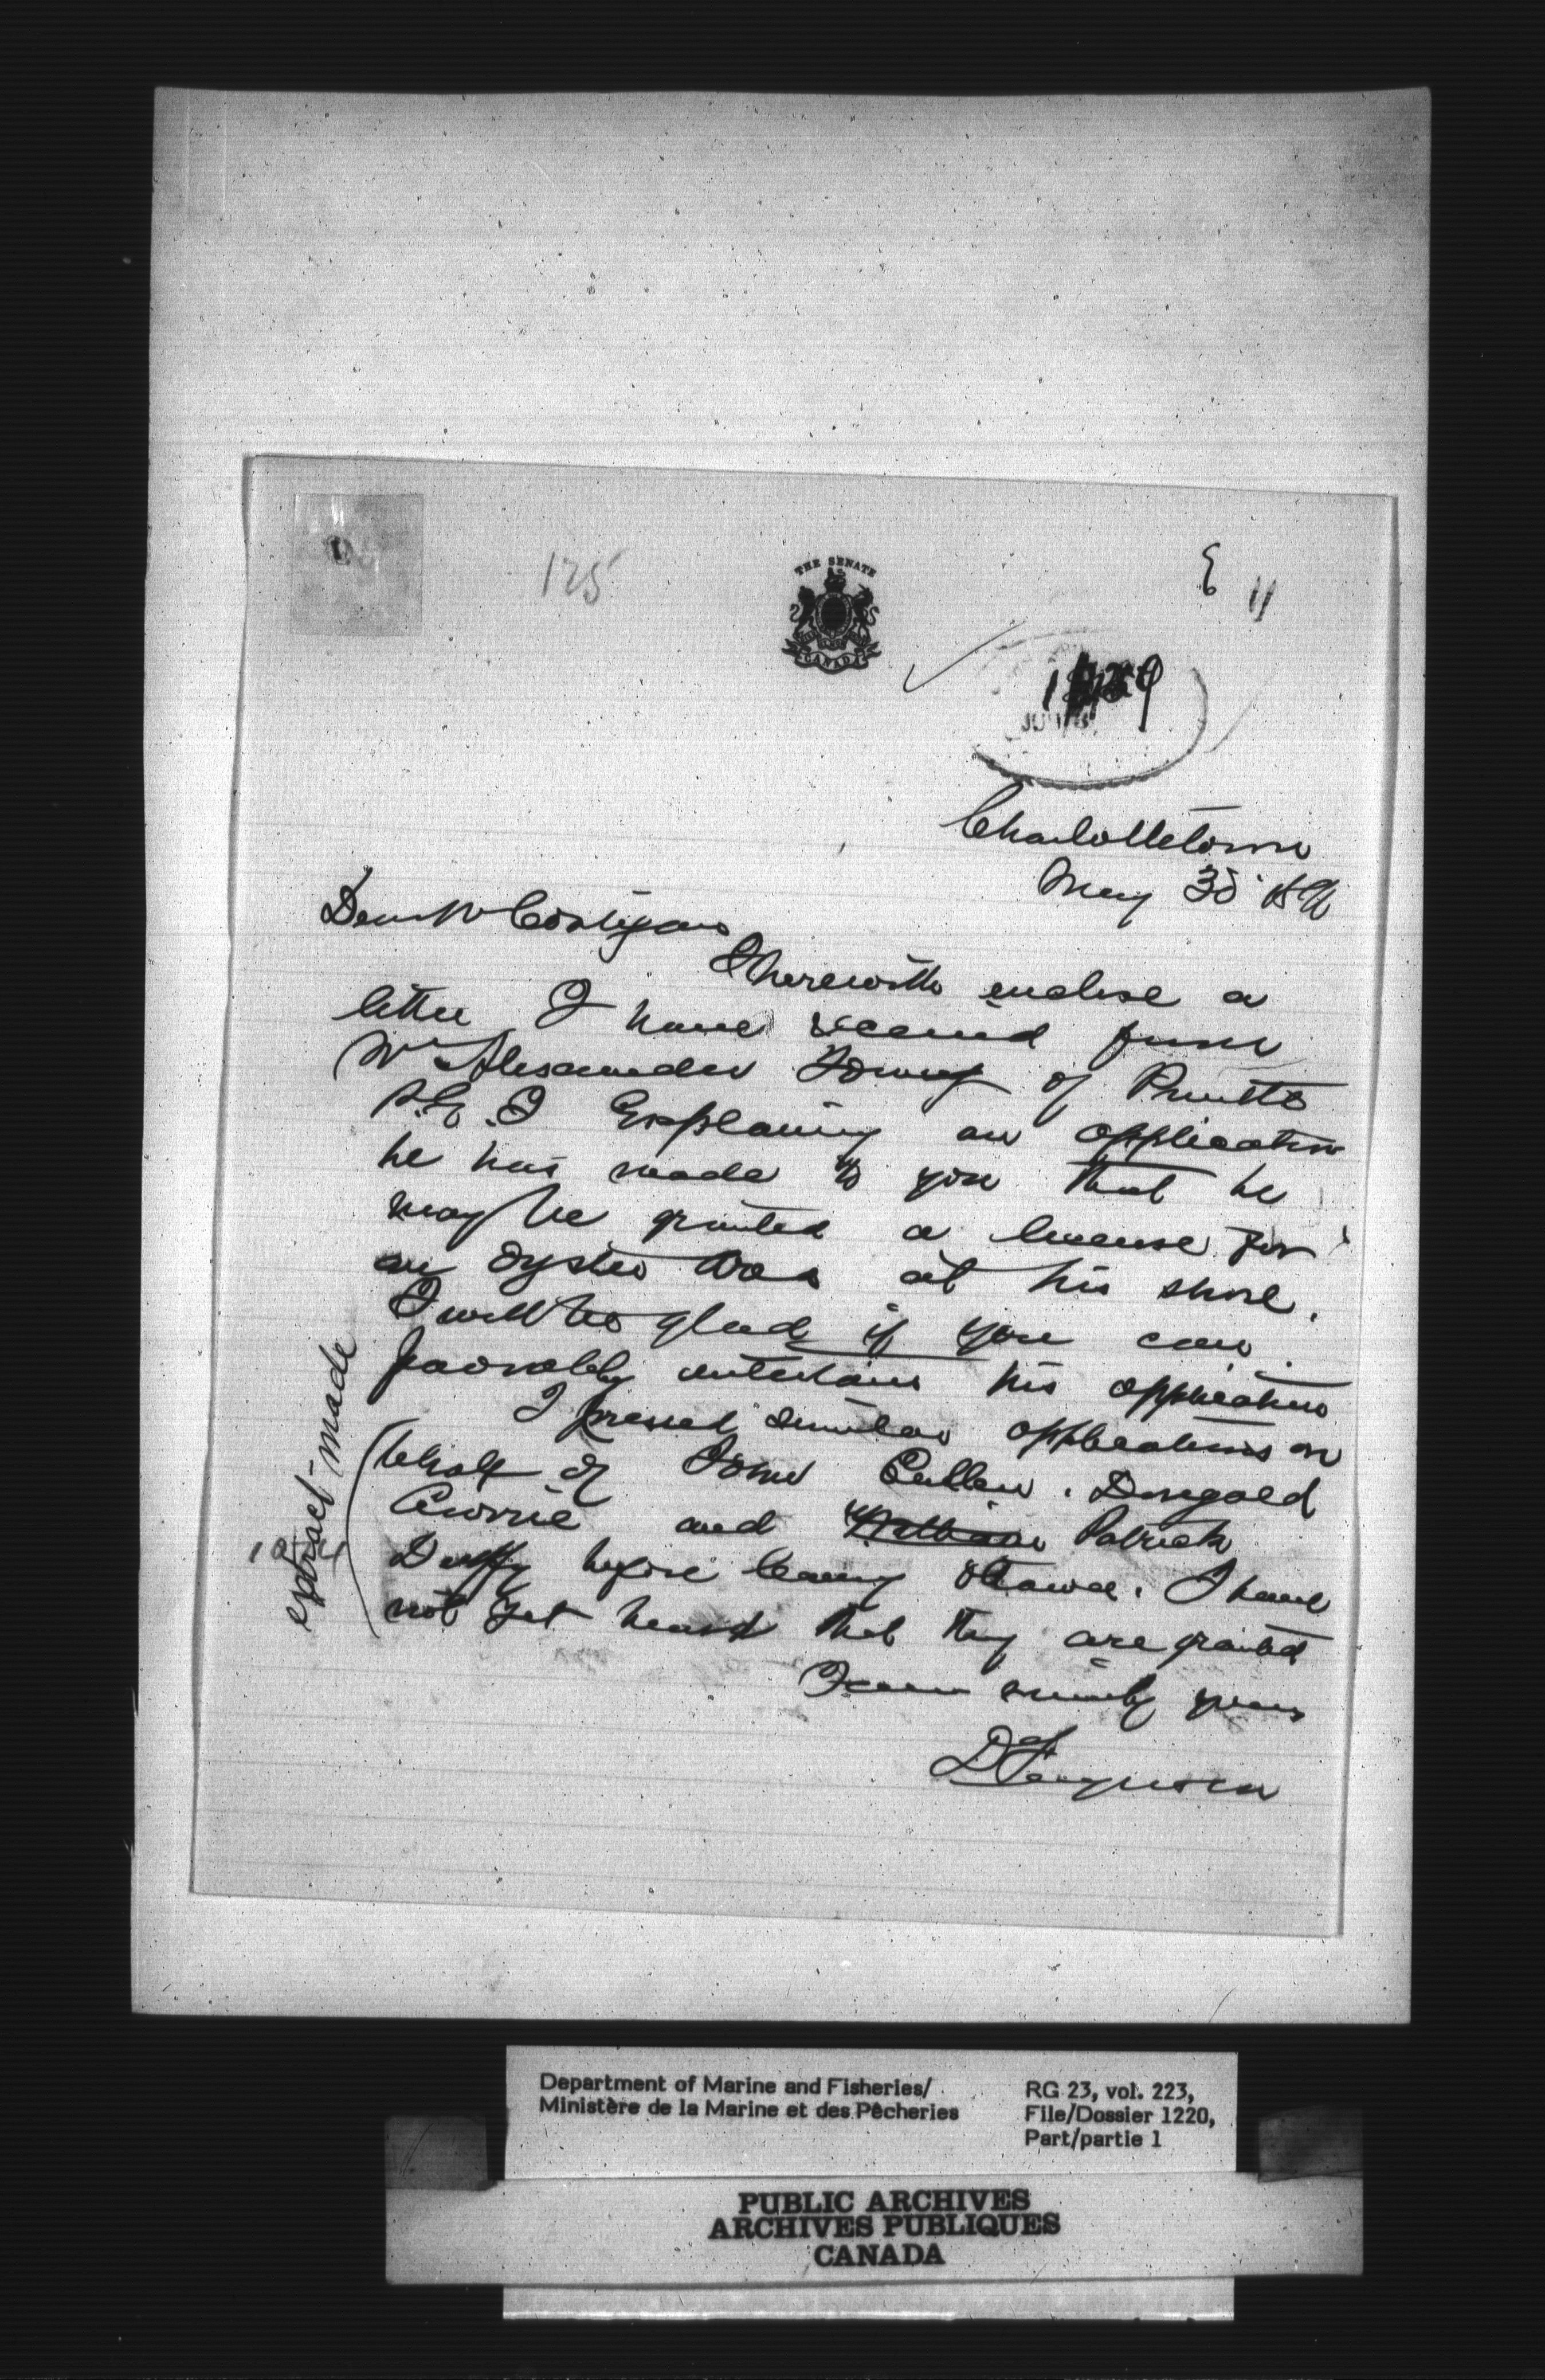 125
THE SENATE
CANADA
E 11
Charlottetown
May 30
Dear Mr Costigan
I herewith enclose a
letter I have received from
Mr Alexander of
P.E.I Explaining an application
he has made to you that he
may be granted a license for
an oyster area at his shore.
I will be glad if you can
favorably entertain his application
I pressed similar applications on
behalf of John Cullen. Dougald
Currie and William Patrick
Duffy before leaving Ottawa. I have
not yet heard that they are granted
I am sincerely yours
D Ferguson
extract made
Department of Marine and Fisheries/
Ministère de la Marine et des Pêcheries
RG 23, vol. 223,
File/Dossier 1220,
Part/partie 1
PUBLIC ARCHIVES
ARCHIVES PUBLIQUES
CANADA